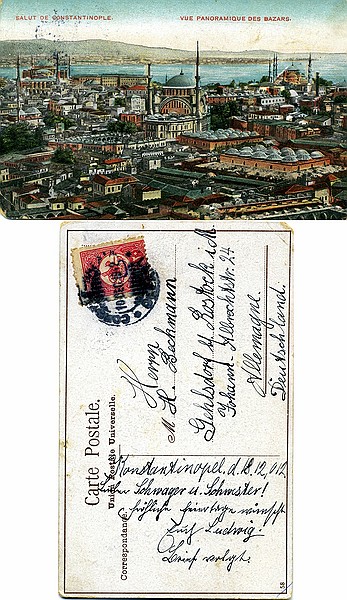 SALUT DE CONSTANTINOPLE.
VUE PANORAMIQUE DES BAZARS.
Carte Postale.
Union Postale Universelle.
Correspondance.
Herrn
H. Beckmann
Gehlsdorf b. Rostock i/M.
Johann-Albrechtstr. 24
Allemagne.
Deutschland.
Konstantinopel. d. 18. 12. 012
Lieber Schwager u. Schwester!
Fröhliche Feiertage wünscht
Euch Ludwig
Brief folgt.
58